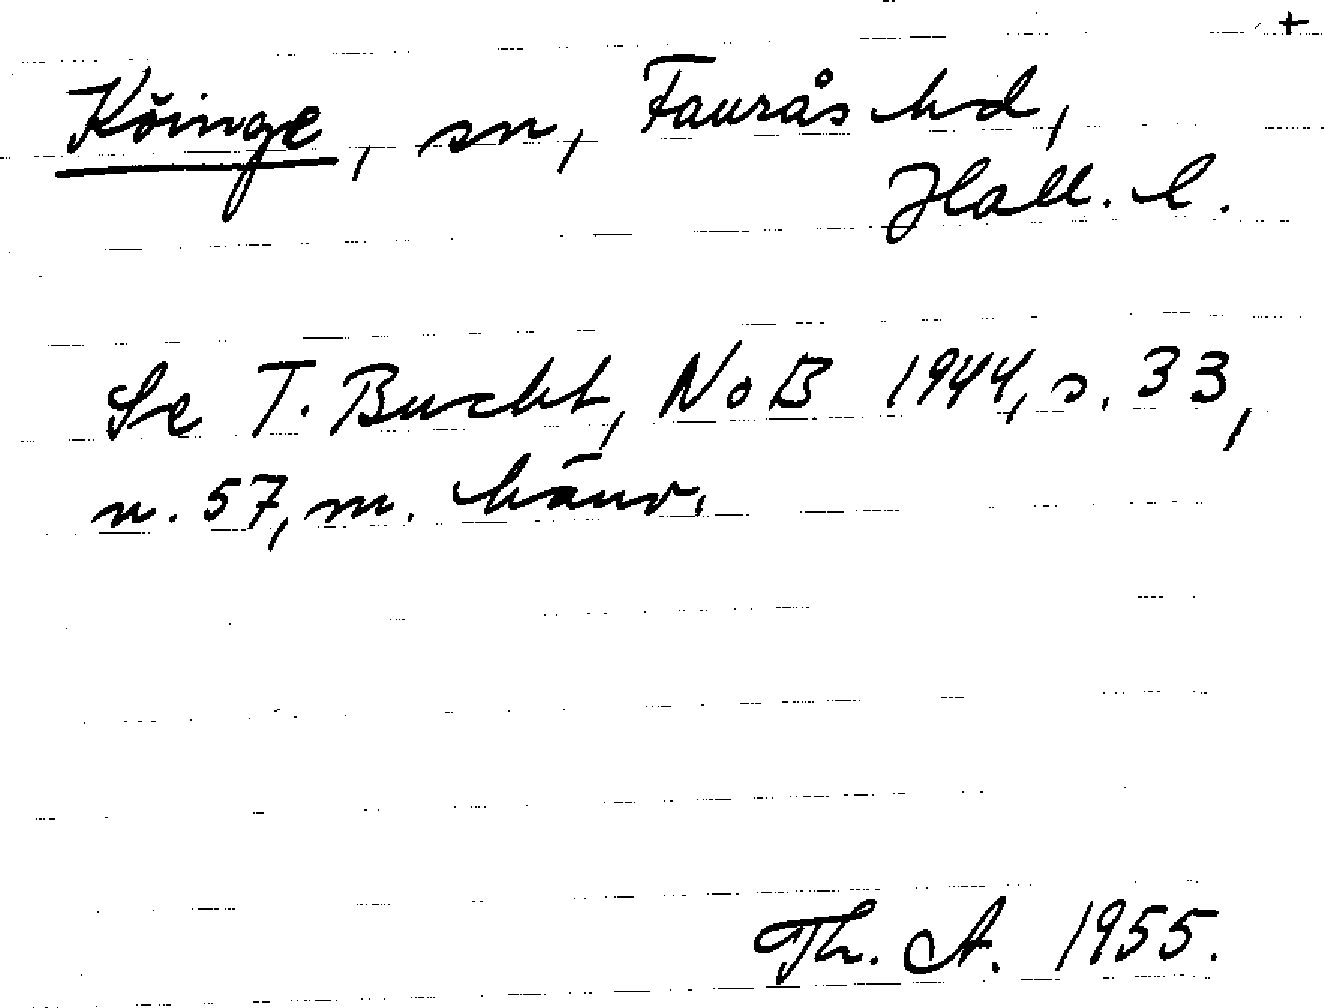 +
Köinge, sn, Faurås hd,
Hall. l.
Se T. Bucht, NoB 1944, s. 33,
n. 57, m. hänv.
Th. A. 1955.